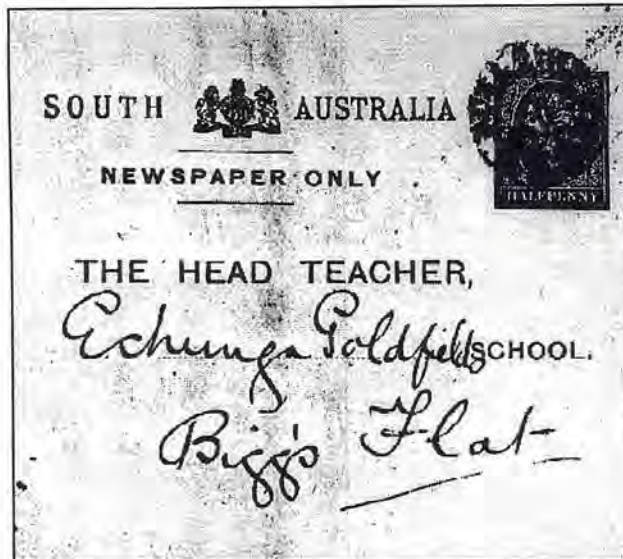 SOUTH AUSTRALIA
HALFPENNY
NEWSPAPER ONLY
THE HEAD TEACHER,
Echunga Goldfields SCHOOL.
Bigg's Flat